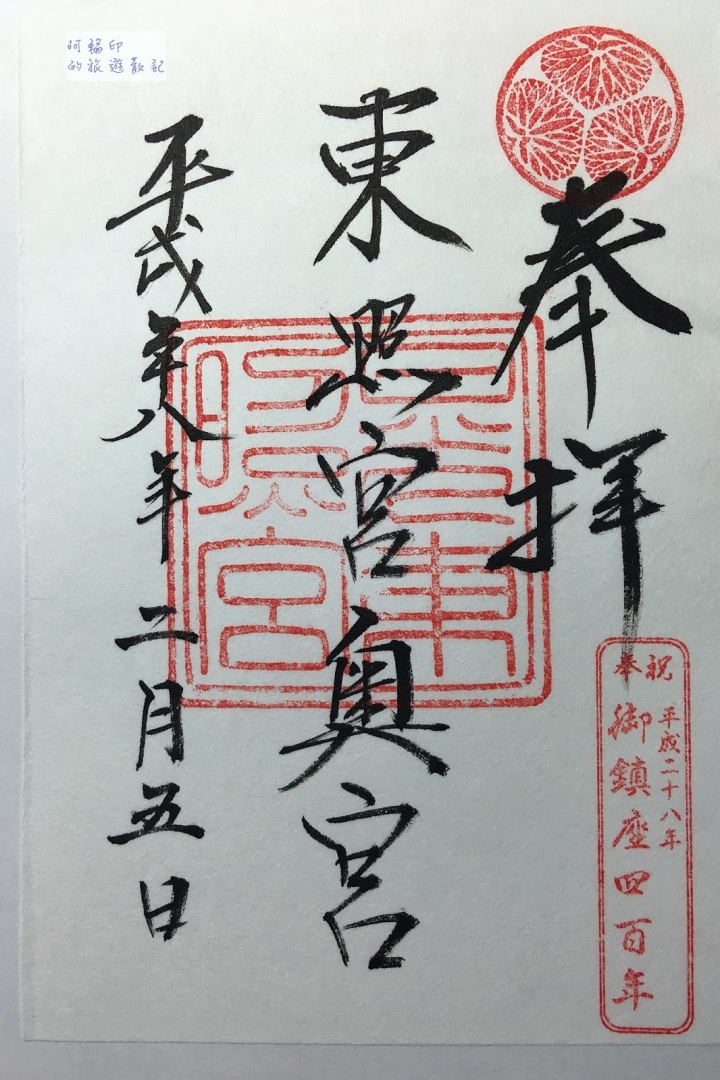 阿福印
的旅遊散記
奉拝
奉祝
平成二十八年
御鎮座四百年
東照宮奥宮
平成廿八年二月五日